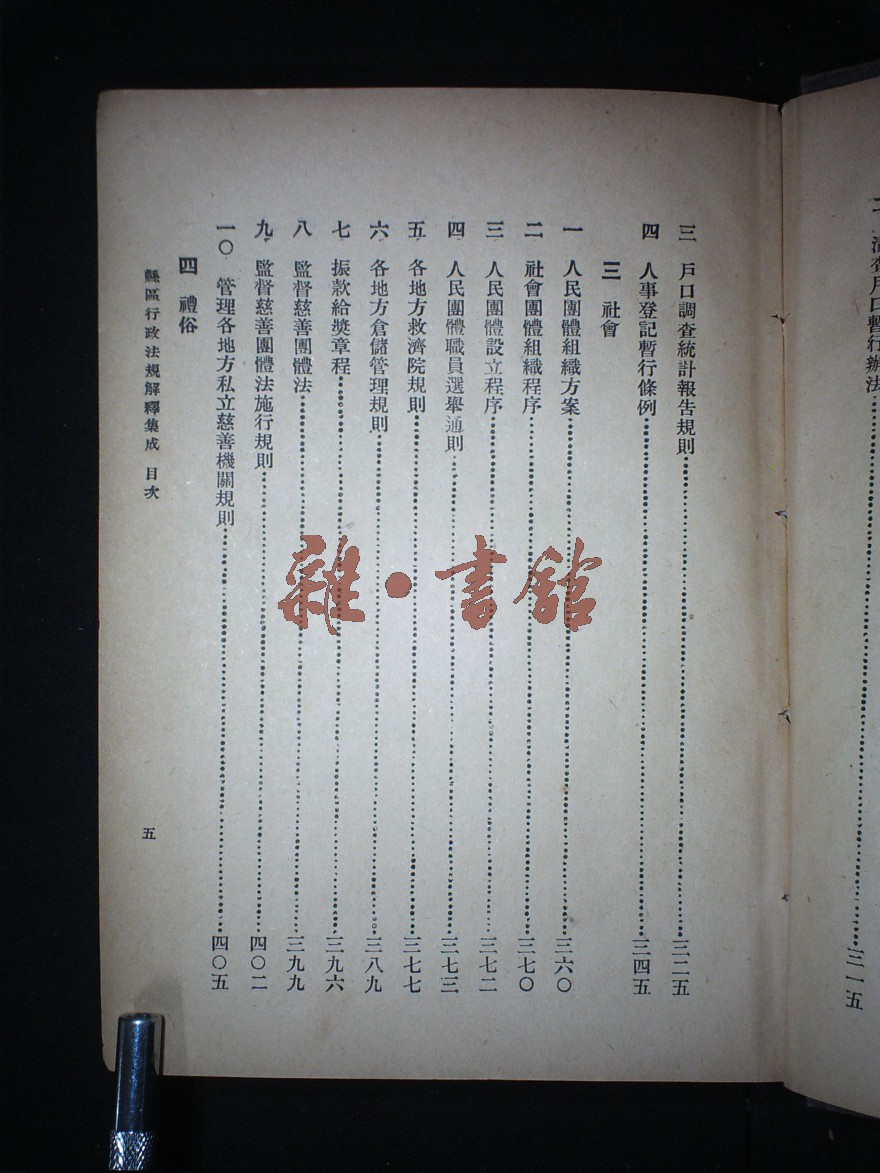 二　清查戶口暫行辦法……三一五
三　戶口調查統計報告規則……三二五
四　人事登記暫行條例……三四五
三　社會
一　人民團體組織方案……三六〇
二　社會團體組織程序……三七〇
三　人民團體設立程序……三七二
四　人民團體職員選舉通則……三七三
五　各地方救濟院規則……三七七
六　各地方倉儲管理規則……三八九
七　振款給獎章程……三九六
八　監督慈善團體法……三九九
九　監督慈善團體法施行規則……四〇二
一〇　管理各地方私立慈善機關規則……四〇五
四　禮俗
縣區行政法規解釋集成　目次　五
雜·書館